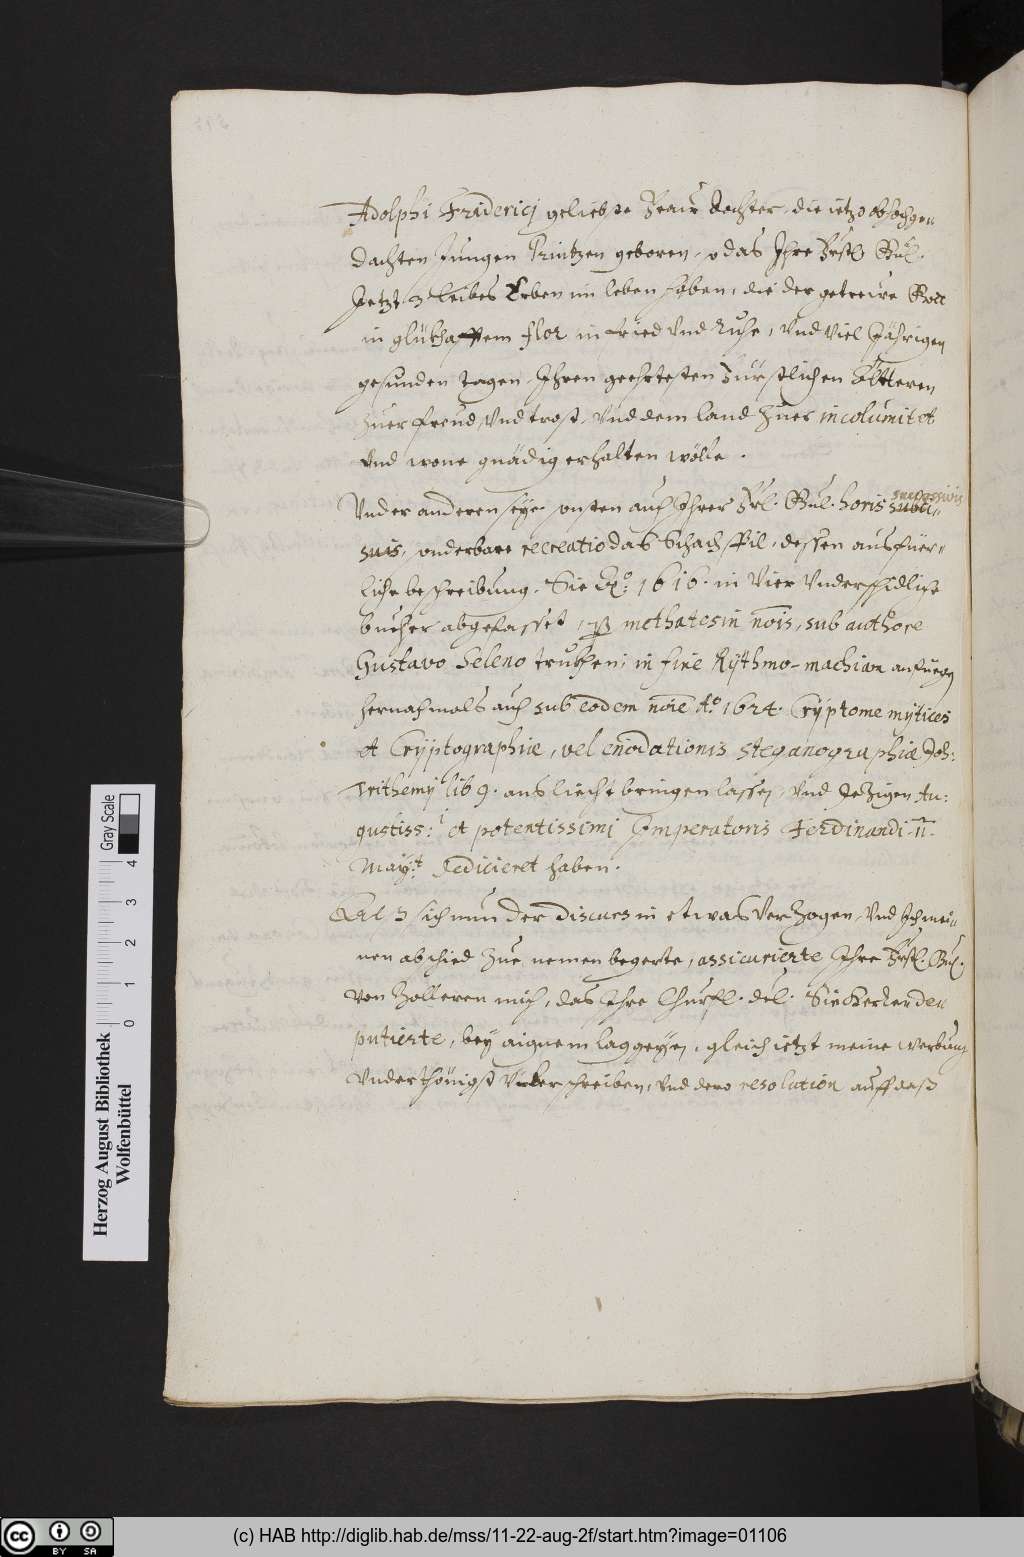 Adolphi Friderici geliebste Fraw dochter, die ietzo obhochge-
dachten Jungen Printzen geboren, das Ihre Frstl. Gnl.
Jetzt 3 leibes Erben im leben haben, die der getreüe Gott
in glükhafftem flor in fried vnd Ruhe, vnd viel Jährigen
gesunden tagen, Ihren geehrtesten Fürstlichen Ölttern
zuer freud, vnd trost, vnd dem land zuer incolumitet
vnd wone gnädig erhalten wölle.
Vnder anderen seye onsten auch Ihrer Frl. Gnl. horis
successivis
suis, onderbare recreatio das Schach spil, dessen ausfüer-
liche beschreibung, Sie Ao: 1616. in Vier Vnderschidliche
bücher abgefasset, per methatesin nois, sub authore
Gustavo Seleno trukhen, in fine Rythmo-machiam anfuegen
hernachmals auch sub eodem noie Ao. 1624. Cryptomenytices
et Cryptographiæ, vel enodationis steganographiæ Joh:
Trithemy lib 9. ans liecht bringen lassen, vnd Jeziger Au-
gustiss:i et potentissimi Imperatoris Ferdinandi II.
May:t dedicieret haben.
Als sich nun der discurs in etwas verzogen, vnd Ich mei-
nen abschied zue nemen begerte, assicurierte Ihre Frstl. Gnl.
von Zolleren mich, das Ihre Churfl. dul. Sie
putierte, bey aignem laggeyen, gleich ietzt meine werbung
Vnderthönigst vberschreiben, vnd dero resolution auff daß
Herzog August Bibliothek
Wolfenbüttel
0 1 2 3 4
Gray Scale
cc BY SA
(c) HAB http://diglib.hab.de/mss/11-22-aug-2f/start.htm?image=01106